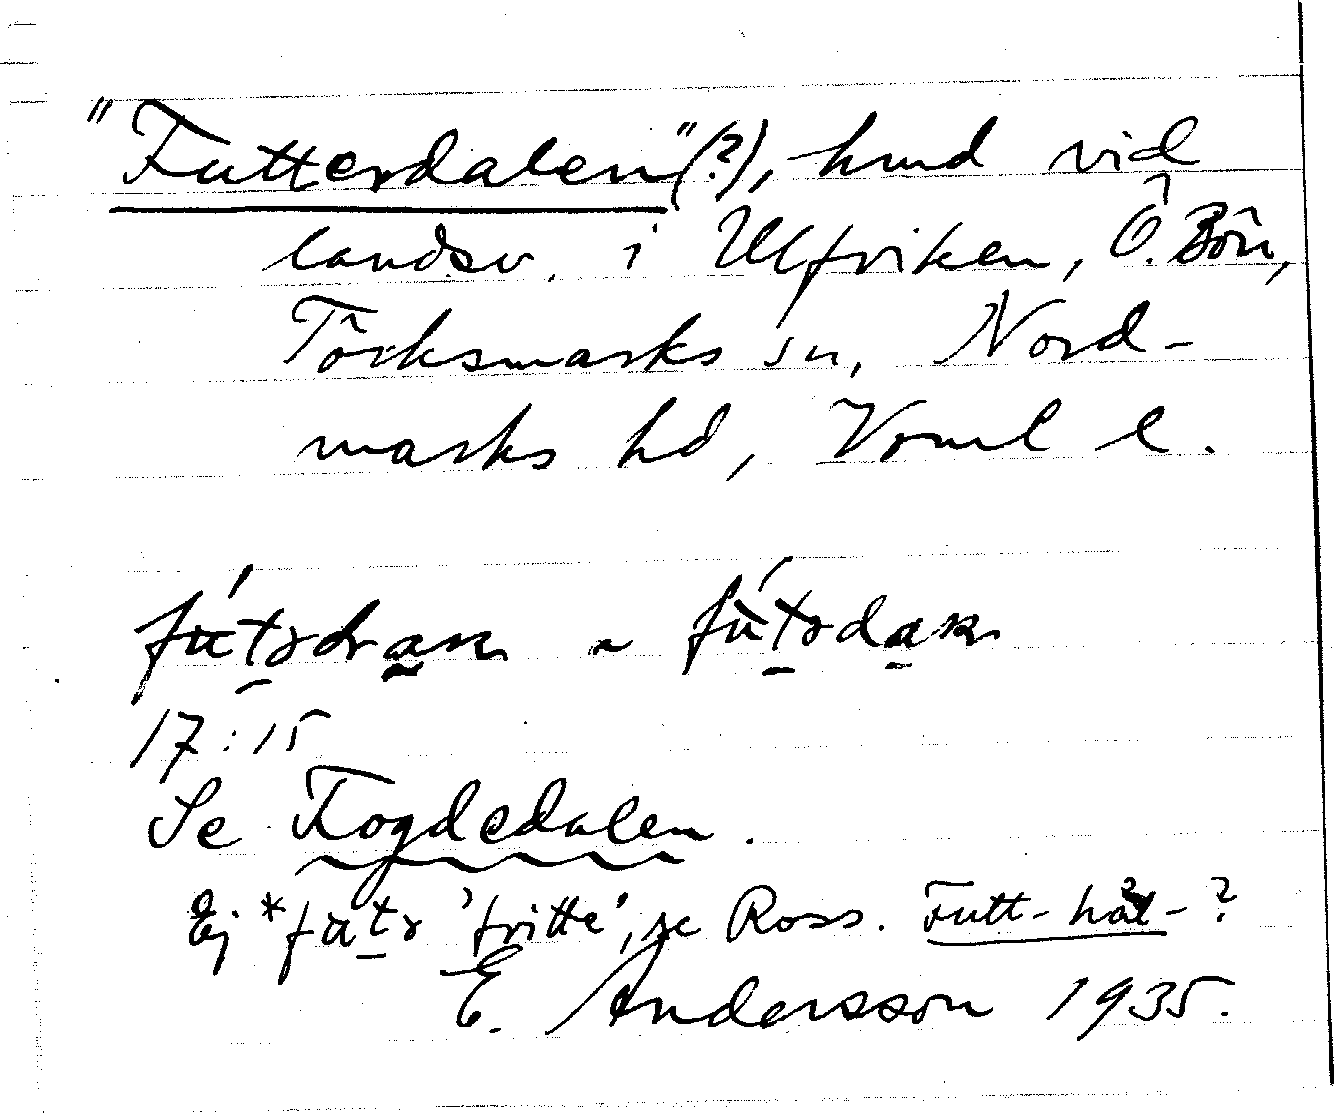 "Futterdalen"(?), hmd vid
landsv. i Ulfviken, Ö. Bön,
Töcksmarks sn, Nord-
marks hd, Vrml l.
17:15
Se Fogdedalen.
Ej *fʉtɤ 'fritte', se Ross. Futt-hål-?
E. Andersson 1935.